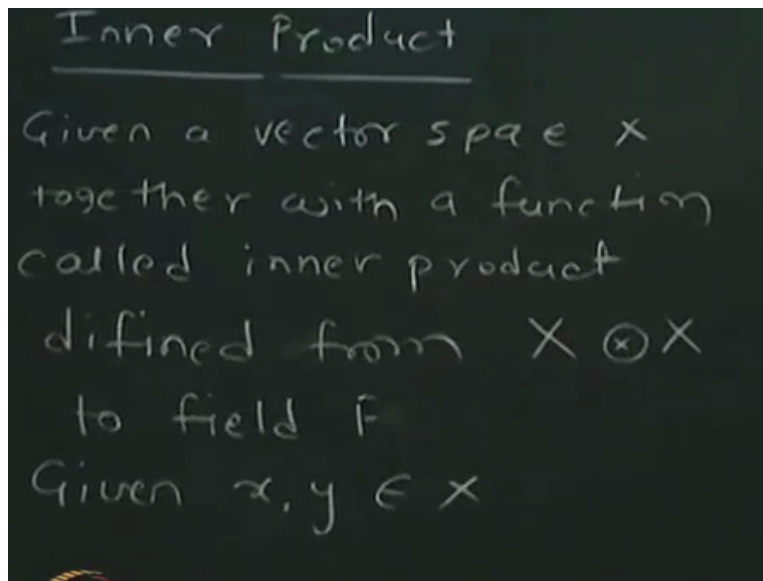 Inner Product
Given a vector spae X
together with a function
called inner product
difined from X ⊗ X
to field F
Given x, y ∈ X